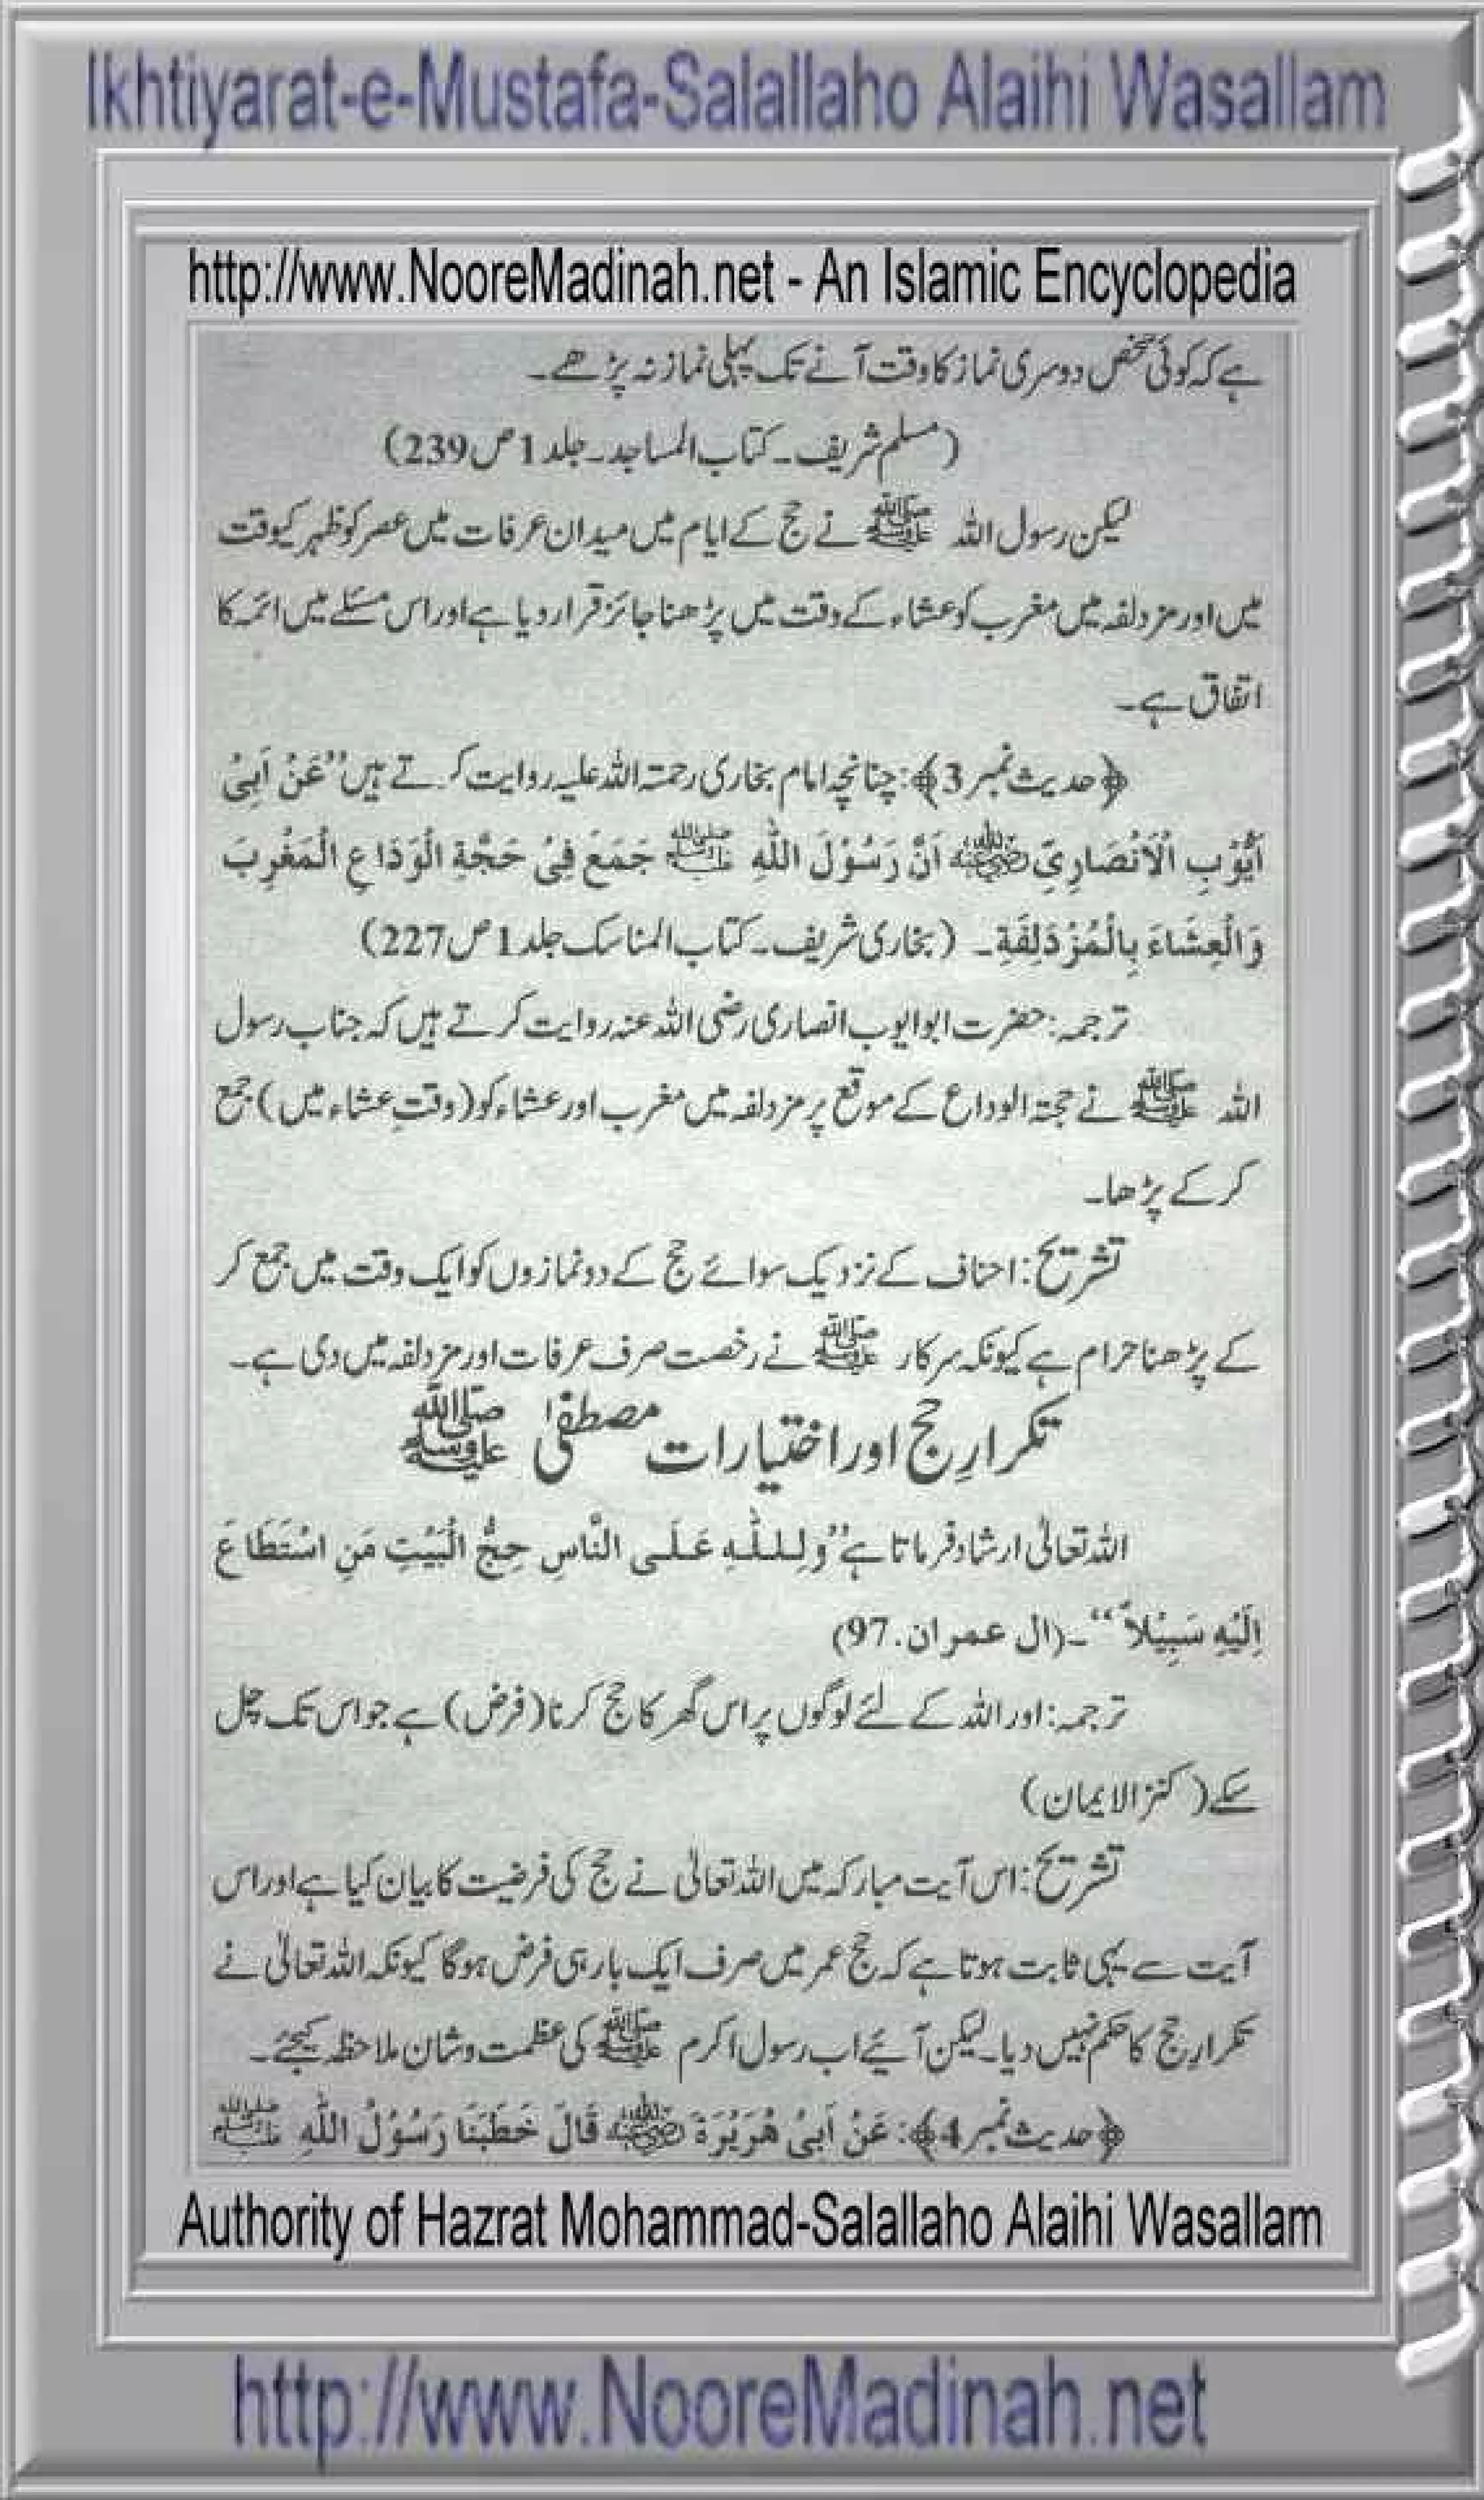 Ikhtiyarat-e-Mustafa-Salallaho Alaihi Wasallam
http://www.NooreMadinah.net - An Islamic Encyclopedia
ہے کہ کوئی شخص دوسری نماز کا وقت آنے تک پہلی نماز نہ پڑھے۔
(مسلم شریف۔ کتاب المساجد۔ جلد 1 ص 239)
لیکن رسول اللہ ﷺ نے حج کے ایام میں میدان عرفات میں عصر کو ظہر کیوقت
میں اور مزدلفہ میں مغرب کو عشاء کے وقت میں پڑھنا جائز قرار دیا ہے اور اس مسئلے میں ائمہ کا
اتفاق ہے۔
﴿حدیث نمبر 3﴾: چنانچہ امام بخاری رحمتہ اللہ علیہ روایت کرتے ہیں ’’عَنْ اَبِیْ
اَیُّوْبِ الْاَنْصَارِیِّ رضی اللہ عنہ اَنَّ رَسُوْلَ اللّٰہِ ﷺ جَمَعَ فِیْ حَجَّۃِ الْوَدَاعِ الْمَغْرِبَ
وَالْعِشَاءَ بِالْمُزْدَلِفَۃِ۔ (بخاری شریف۔ کتاب المناسک جلد 1 ص 227)
ترجمہ: حضرت ابو ایوب انصاری رضی اللہ عنہ روایت کرتے ہیں کہ جناب رسول
اللہ ﷺ نے حجتہ الوداع کے موقع پر مزدلفہ میں مغرب اور عشاء کو (وقتِ عشاء میں) جمع
کر کے پڑھا۔
تشریح: احناف کے نزدیک سوائے حج کے دو نمازوں کو ایک وقت میں جمع کر
کے پڑھنا حرام ہے کیونکہ سرکار ﷺ نے رخصت صرف عرفات اور مزدلفہ میں دی ہے۔
تکرارِ حج اور اختیارات مصطفیٰ ﷺ
اللہ تعالیٰ ارشاد فرماتا ہے ’’وَلِلّٰہِ عَلَی النَّاسِ حِجُّ الْبَیْتِ مَنِ اسْتَطَاعَ
اِلَیْہِ سَبِیْلاً‘‘۔ (ال عمران.97)
ترجمہ: اور اللہ کے لئے لوگوں پر اس گھر کا حج کرنا (فرض) ہے جو اس تک چل
سکے (کنزالایمان)
تشریح: اس آیت مبارکہ میں اللہ تعالیٰ نے حج کی فرضیت کا بیان کیا ہے اور اس
آیت سے یہی ثابت ہوتا ہے کہ حج عمر میں صرف ایک بار ہی فرض ہوگا کیونکہ اللہ تعالیٰ نے
تکرارِ حج کا حکم نہیں دیا۔ لیکن آئیے اب رسول اکرم ﷺ کی عظمت و شان ملاحظہ کیجئے۔
﴿حدیث نمبر 4﴾: عَنْ اَبِیْ ھُرَیْرَۃَ رضی اللہ عنہ قَالَ خَطَبَنَا رَسُوْلُ اللّٰہِ ﷺ
Authority of Hazrat Mohammad-Salallaho Alaihi Wasallam
http://www.NooreMadinah.net